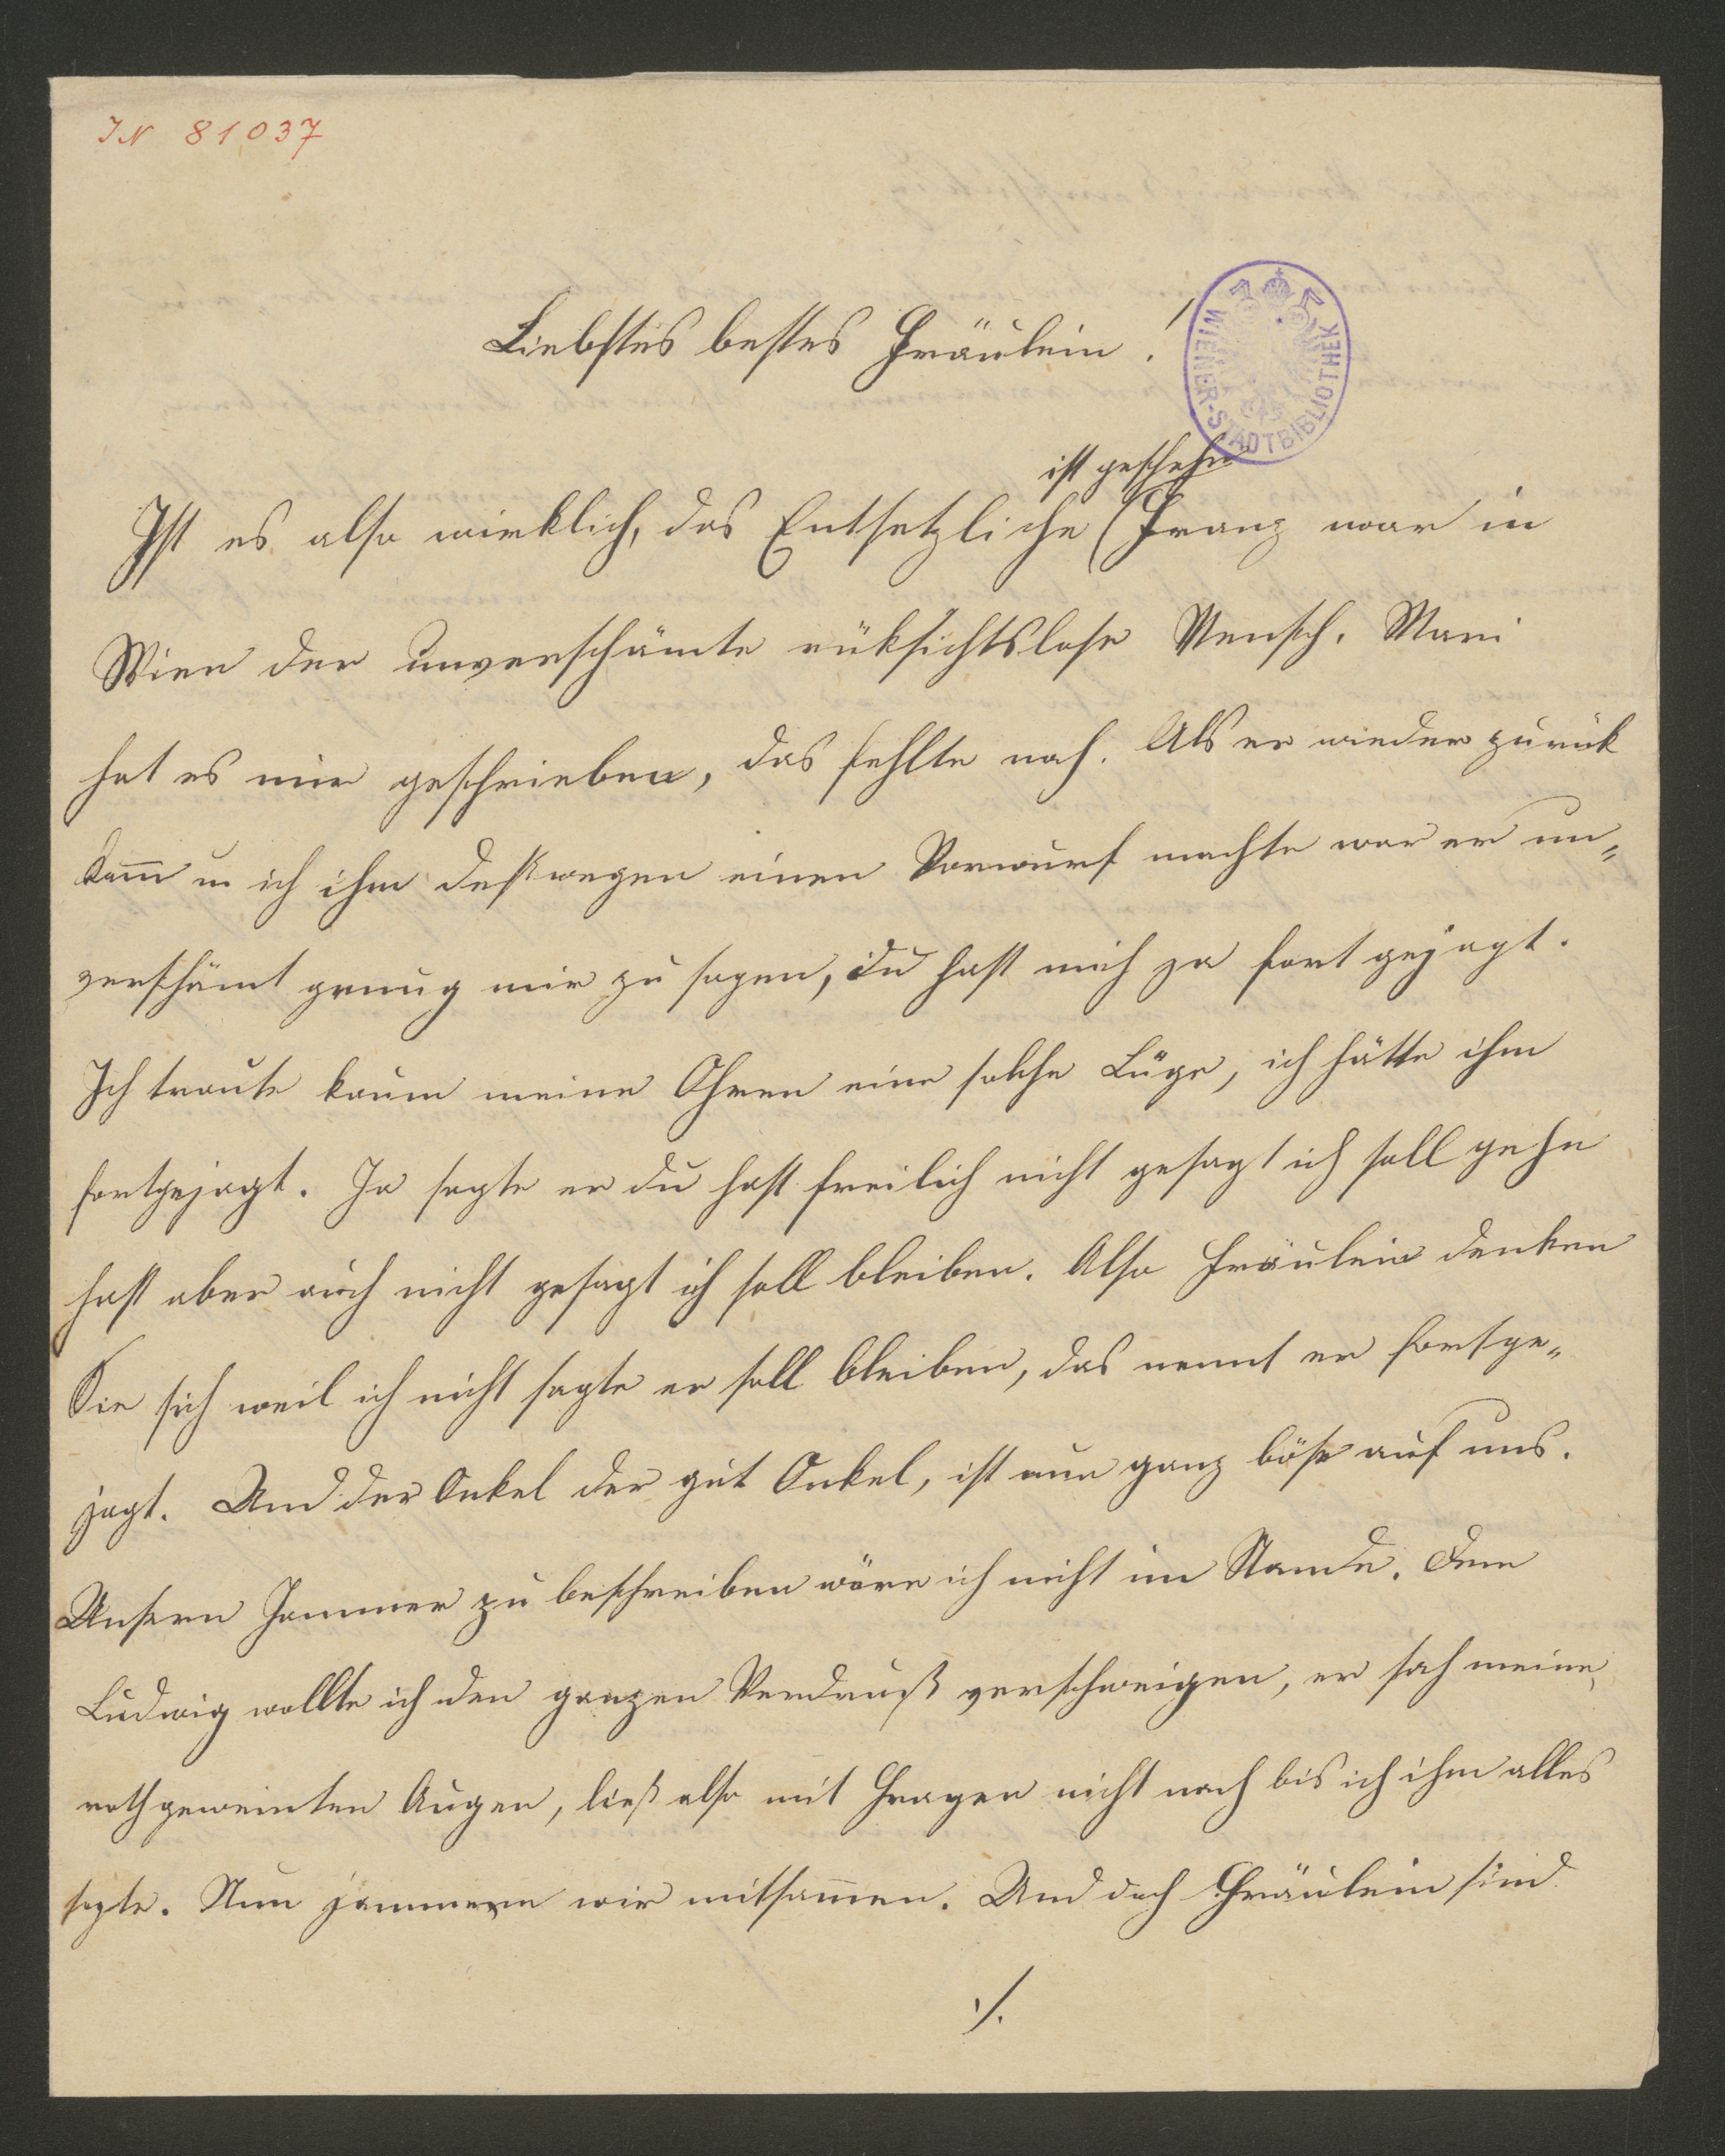 IN 81037
Liebstes bestes Fräulein!
WIENER-STADTBIBLIOTHEK
ist geschehn
Ist es also wirklich, das Entsetzliche (Franz war in
Wien der unverschämte rüksichtslose Mensch. Mari
hat es mir geschrieben, das fehlte noch. Als er wieder zurük
kam̅ u ich ihm deßwegen einen Vorwurf machte war er un„
verschämt genug mir zu sagen, du hast mich ja fort gejagt.
Ich traute kaum meine Ohren eine solche Lüge, ich hätte ihm
fortgejagt. Ja sagte er du hast freilich nicht gesagt ich soll gehn
hast aber auch nicht gesagt ich soll bleiben. Also Fräulein denken
Sie sich weil ich nicht sagte er soll bleiben, das nennt er fortge„
jagt. Und der Onkel der gut Onkel, ist nun ganz böse auf uns.
Unsern Jammer zu beschreiben wäre ich nicht im Stande. Dem
Ludwig wollte ich den ganzen Verdruß verschweigen, er sah meine
rothgeweinten Augen, ließ also mit Fragen nicht nach bis ich ihm alles
sagte. Nun jammern wir mitsam̅en. Und doch Fräulein sind
./.